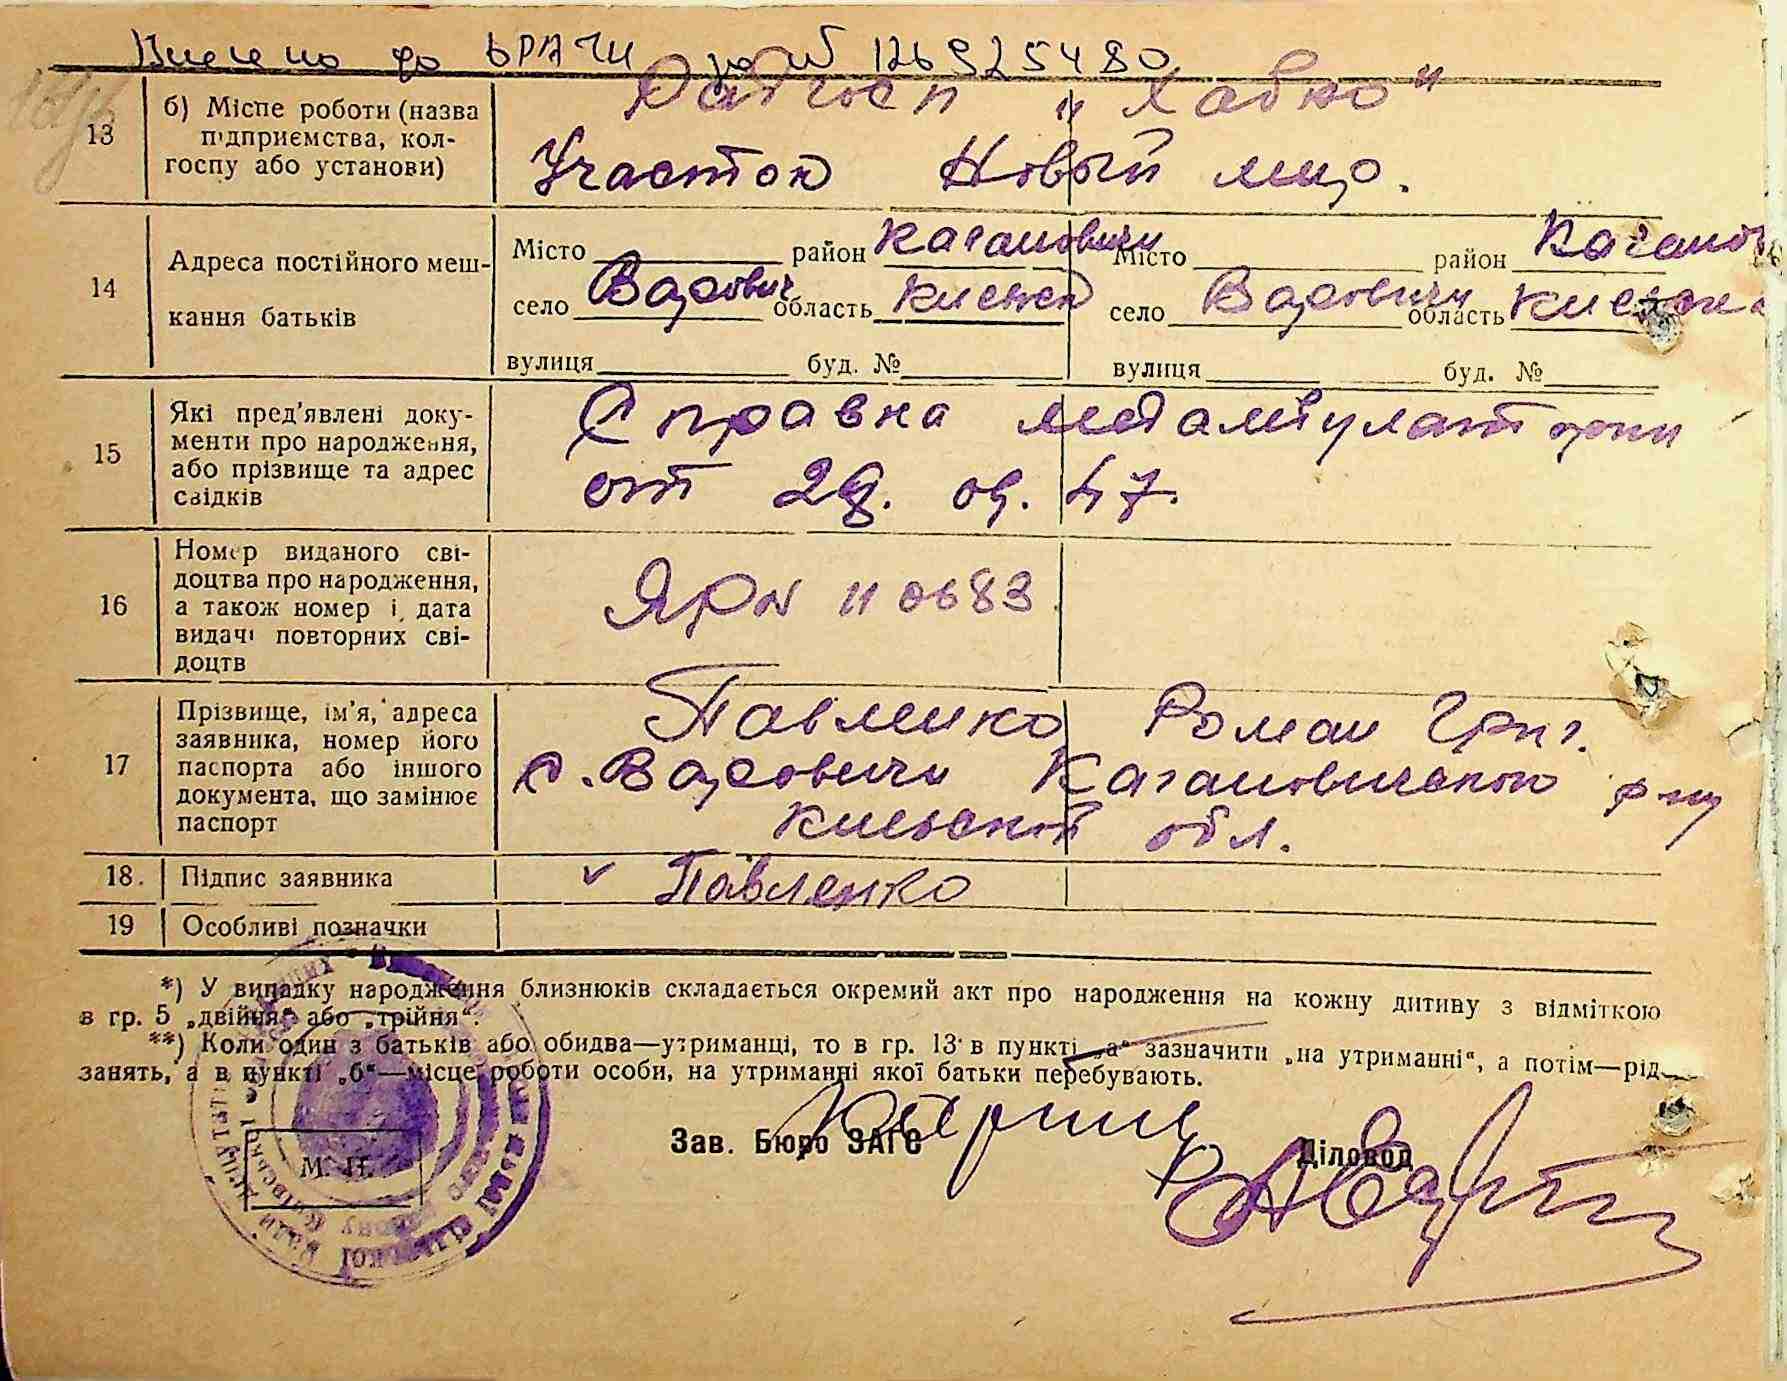 Внесено до ДРАЦС за № 126925480
13 б) Місце роботи (назва підприємства, колгоспу або установи)
Радгосп „Хабно“
Участок Новый мир.
14 Адреса постійного мешкання батьків
Місто район Каганович Місто район Каганов
село Варович область Киевск село Варовичи область Киевска
вулиця буд. № вулиця буд. №
15 Які пред'явлені документи про народження, або прізвище та адрес свідків
Справка медамбулатории
от 29. 09. 47.
16 Номер виданого свідоцтва про народження, а також номер і дата видачі повторних свідоцтв
ЯР № 110683
17 Прізвище, ім'я, адреса заявника, номер його паспорта або іншого документа, що замінює паспорт
Павленко Роман Григ.
с. Варовичи Кагановического р-ну
Киевской обл.
18. Підпис заявника
v Павленко
19 Особливі позначки
*) У випадку народження близнюків складається окремий акт про народження на кожну дитину з відміткою
в гр. 5 „двійня“ або „трійня“.
**) Коли один з батьків або обидва—утриманці, то в гр. 13 в пункті „а“ зазначити „на утриманні“, а потім—рід
занять, а в пункті „б“—місце роботи особи, на утриманні якої батьки перебувають.
Зав. Бюро ЗАГС Діловод
М. П.